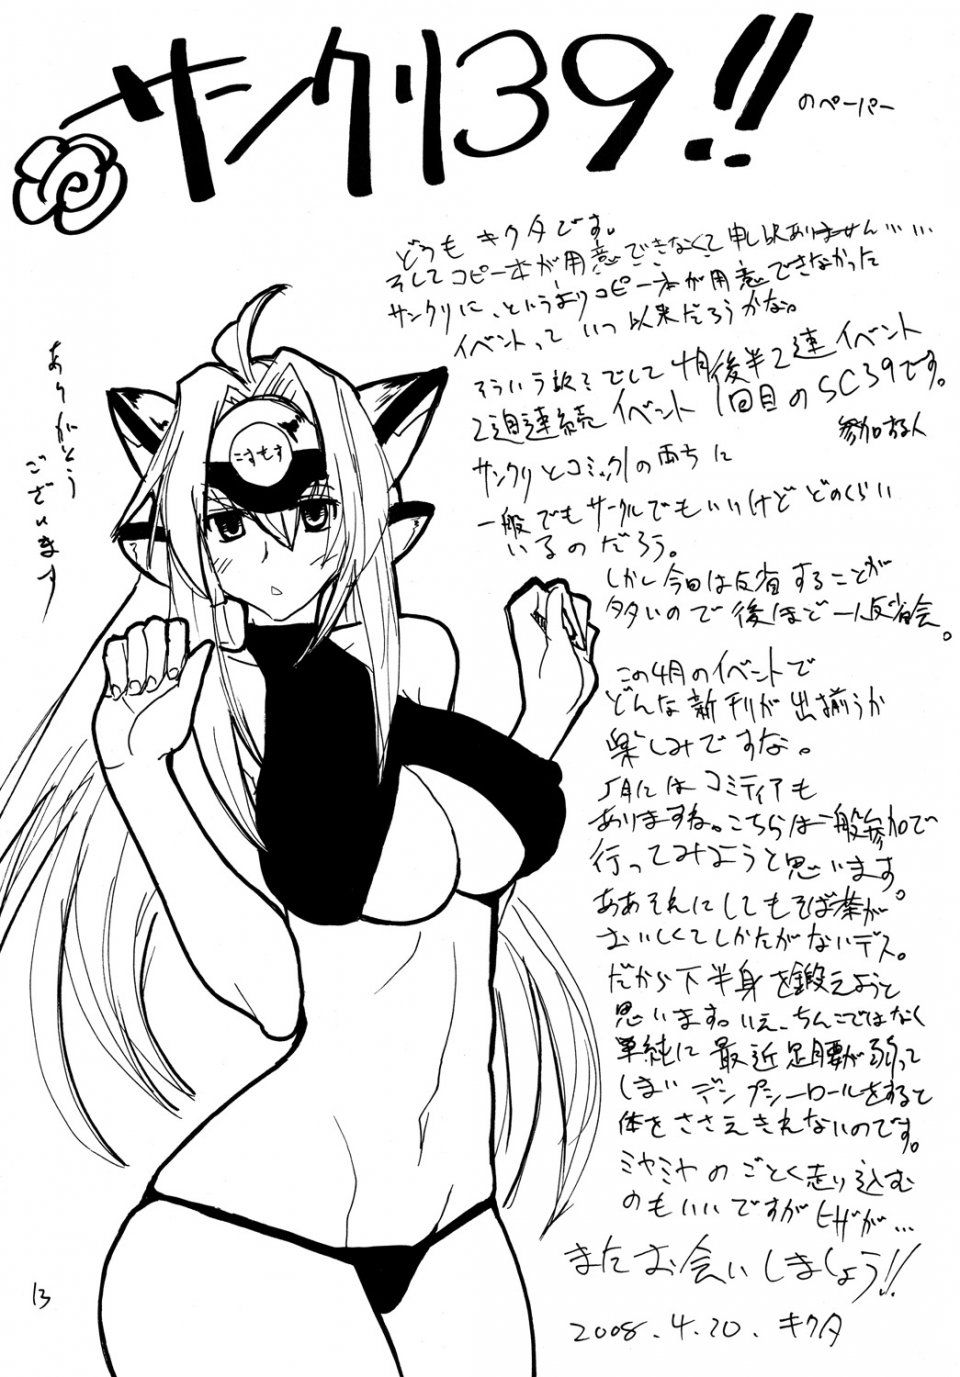 サンクリ39!!
のペーパー
どうもキクタです。
そしてコピー本が用意できなくて申し訳ありません……
サンクリに、というよりコピー本が用意できなかった
イベントっていつ以来だろうかな。
そういう訳でして4月後半2連イベント
2週連続イベント1回目のSC39です。
サンクリとコミック1の両方に
参加する人
一般でもサークルでもいいけどどのくらい
いるのだろう。
しかし今回は反省することが
多いので後ほど一人反省会。
この4月のイベントで
どんな新刊が出揃うか
楽しみですな。
5月にはコミティアも
ありますね。こちらは一般参加で
行ってみようと思います。
ああそれにしてもそば茶が
おいしくてしかたがないデス。
だから下半身を鍛えようと
思います。いえ、ちんこではなく
単純に最近足腰が弱って
しまい デンプシーロールをすると
体をささえきれないのです。
ミヤミヤのごとく走り込む
のもいいですがヒザが…
またお会いしましょう!!
2008.4.20. キクタ
ありがとう
ございます
こすもす
13